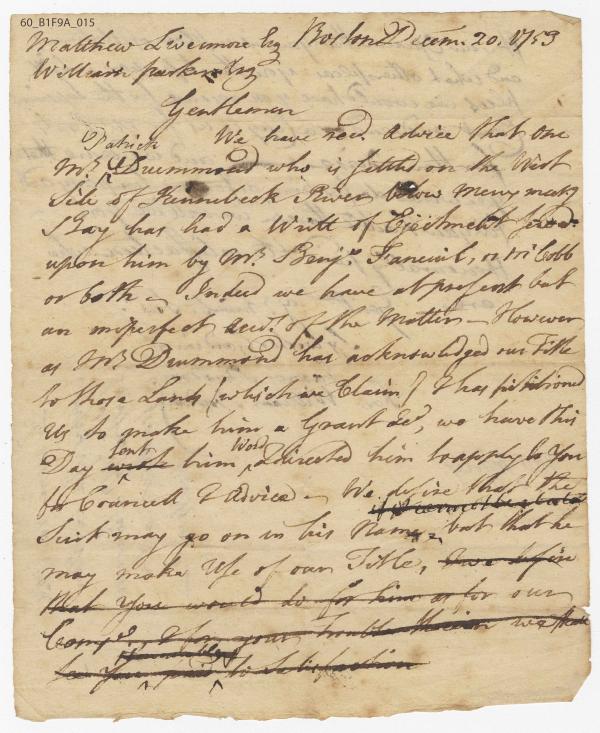 60_B1F9A_015
Matthew Livermore Esq Boston Decem. 20. 1753
William Parker Esq
Gentlemen
Patrick We have recd. Advice that one
Mr. Drummond who is settled on the West
Side of Kennebeck River below Merry meeting
Bay has had a Writt of Ejectment served
upon him by Mr. Benja. Faneuil, or Mr Cobb
or both – Indeed we have at present but
an imperfect acct. of the Matter – However
as Mr Drummond has acknowledged our Title
to those Lands (which we Claim) & has petitioned
Us to make him a Grant &c, we have this
Sent Word
Day wrote him & directed him to apply to You
for Councell & Advice – We desire that the
Suit may go on in his Name, but that he
may make Use of our Title, & we desire
that you would do for him or for our
Compa. & for your Trouble therein we shall
see you paid to Satisfaction